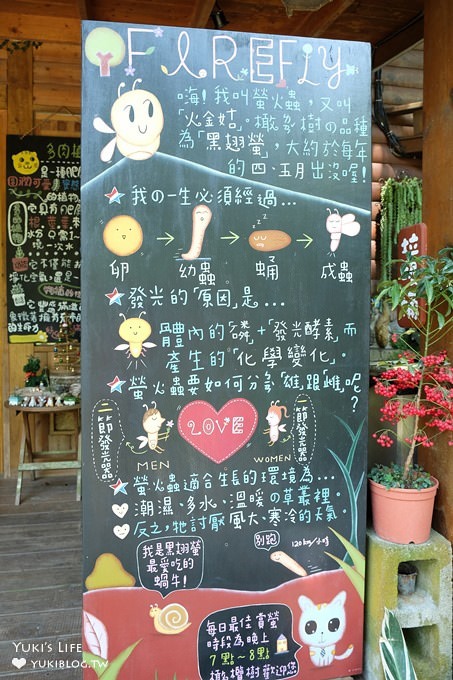 FIREFLY
嗨!我叫螢火蟲,又叫
「火金姑」。橄欖樹の品種
為「黑翅螢」,大約於每年
的四、五月出沒喔!
我の一生必須經過...
卵
幼蟲
蛹
成蟲
發光的「原因」是...
體內的「磷」+「發光酵素」而
產生的「化學變化」。
螢火蟲要如何分為「雄」跟「雌」呢
?
二節發光器
一節發光器
LOVE
MEN
WOMEN
螢火蟲適合生長的環境為...
潮濕、多水、溫暖の草叢裡。
反之,牠討厭風大、寒冷的天氣。
我是黑翅螢
最愛吃的
蝸牛!
別跑
120km/小時
每日最佳賞螢
時段為晚上
7點~8點
橄欖樹歡迎您
多肉植
YUKI'S LIFE
YUKIBLOG.TW